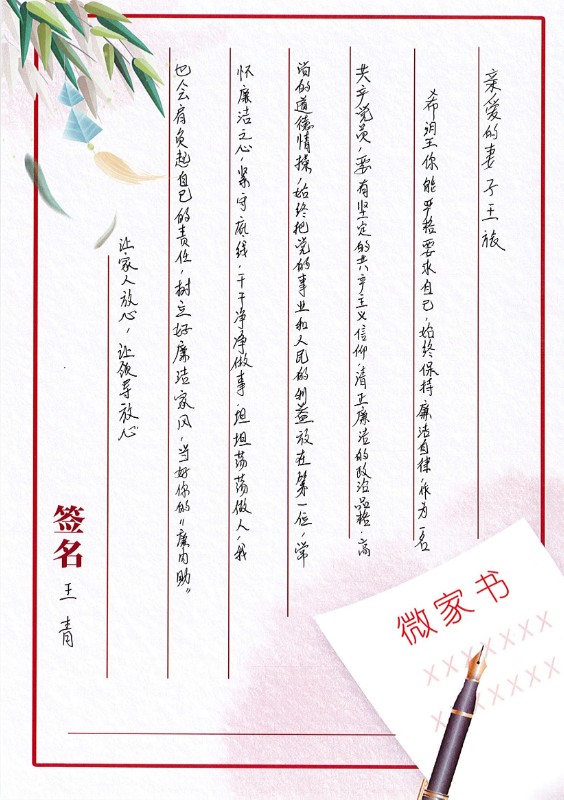 亲爱的妻子王旅
希望你能严格要求自己,始终保持廉洁自律,作为一名
共产党员,要有坚定的共产主义信仰,清正廉洁的政治品格,高
尚的道德情操,始终把党的事业和人民的利益放在第一位,常
怀廉洁之心,紧守底线,干干净净做事,坦坦荡荡做人,我
也会肩负起自己的责任,树立好廉洁家风,当好你的“廉内助”
让家人放心,让领导放心
签名 王青
微家书
XXXXXXX
XXXXXXX